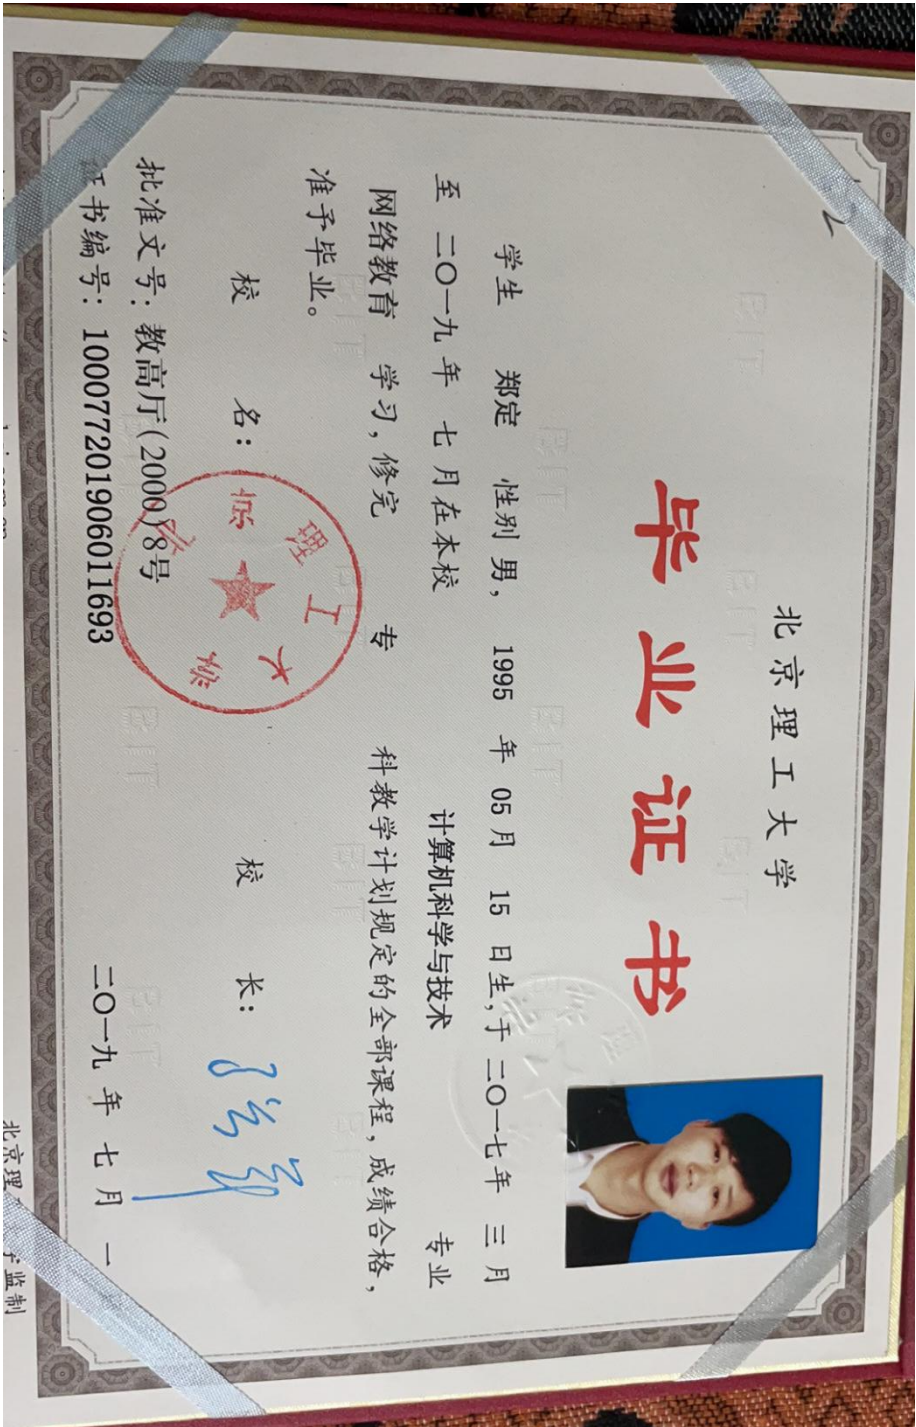 北京理工大学
毕业证书
学生 郑定 性别 男, 1995 年 05 月 15 日生,于 二〇一七年 三 月
至 二〇一九 年 七 月在本校 计算机科学与技术 专业
网络教育 学习,修完 专 科教学计划规定的全部课程,成绩合格,
准予毕业。
校 名: 校 长:
理工大
批准文号:教高厅(2000)8号
证书编号:100077201906011693 二〇一九 年 七 月 一
北京理 监制